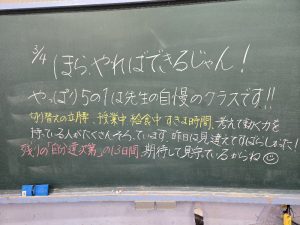 3/4 ほら、やればできるじゃん!
やっぱり5の1は先生の自慢のクラスです!!
切り替えの立腰、授業中 給食中 すきま時間、考えて動く力を
持っている人がたくさんそろっています。昨日は見違えてすばらしかった!
残りの「自分運次第」の13日間、期待して見守ているからね